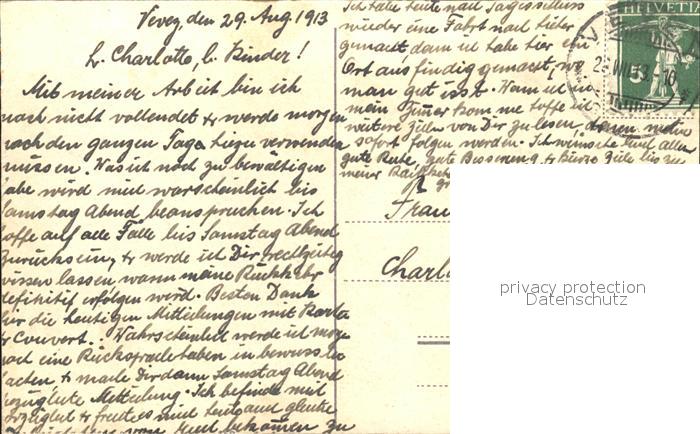 Vevey, den 29. Aug 1913
L. Charlotte, l. Kinder!
Mit meiner Arbeit bin ich
noch nicht vollendet & werde morgen
noch den ganzen Tag hiezu verwenden
müssen. Was ich noch zu bewältigen
habe wird mich warscheinlich bis
Samstag Abend beanspruchen. Ich
hoffe auf alle Fälle bis Samstag Abend
zurück sein, & werde ich Dir rechtzeitig
wissen lassen, wann meine Rückkehr
definitif erfolgen wird. Besten Dank
für die heutigen Mitteilungen mit Karte
& Couvert. Wahrscheinlich werde ich morgen
noch eine Rücksprache haben in bewusster
& mache Dir dann Samstag Abend
bezügliche Mitteilung. Ich befinde mich
& freut es mich
von bekommen zu
Ich habe heute nach Tagesschluss
wieder eine Fahrt nach hier
gemacht, dann ich habe hier ein
Ort ausfindig gemacht, wo
man gut isst. Wann ich in
mein Zimmer komme hoffe ich
weitere Zeilen von Dir zu lesen, denen meine
sofort folgen werden. Ich wünsche Euch allen
gute Ruhe, gute Besserung & kurze Zeile bis zu
meiner
Frau
Charlo
HELVETIA
5
privacy protection
Datenschutz